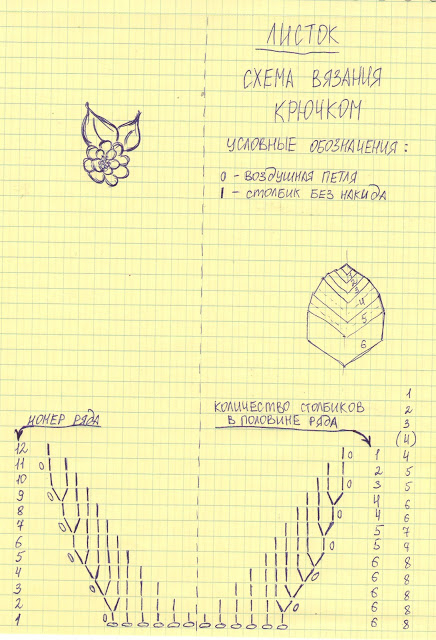 ЛИСТОК
СХЕМА ВЯЗАНИЯ
КРЮЧКОМ
УСЛОВНЫЕ ОБОЗНАЧЕНИЯ:
0 - ВОЗДУШНАЯ ПЕТЛЯ
I - СТОЛБИК БЕЗ НАКИДА
4
5
6
НОМЕР РЯДА
КОЛИЧЕСТВО СТОЛБИКОВ
В ПОЛОВИНЕ РЯДА
1
2
3
(4)
12 1 4
11 2 5
10 3 5
9 4 6
8 4 6
7 5 7
6 5
5 6 8
4 6 8
3 6 8
2 6 8
1 6 8